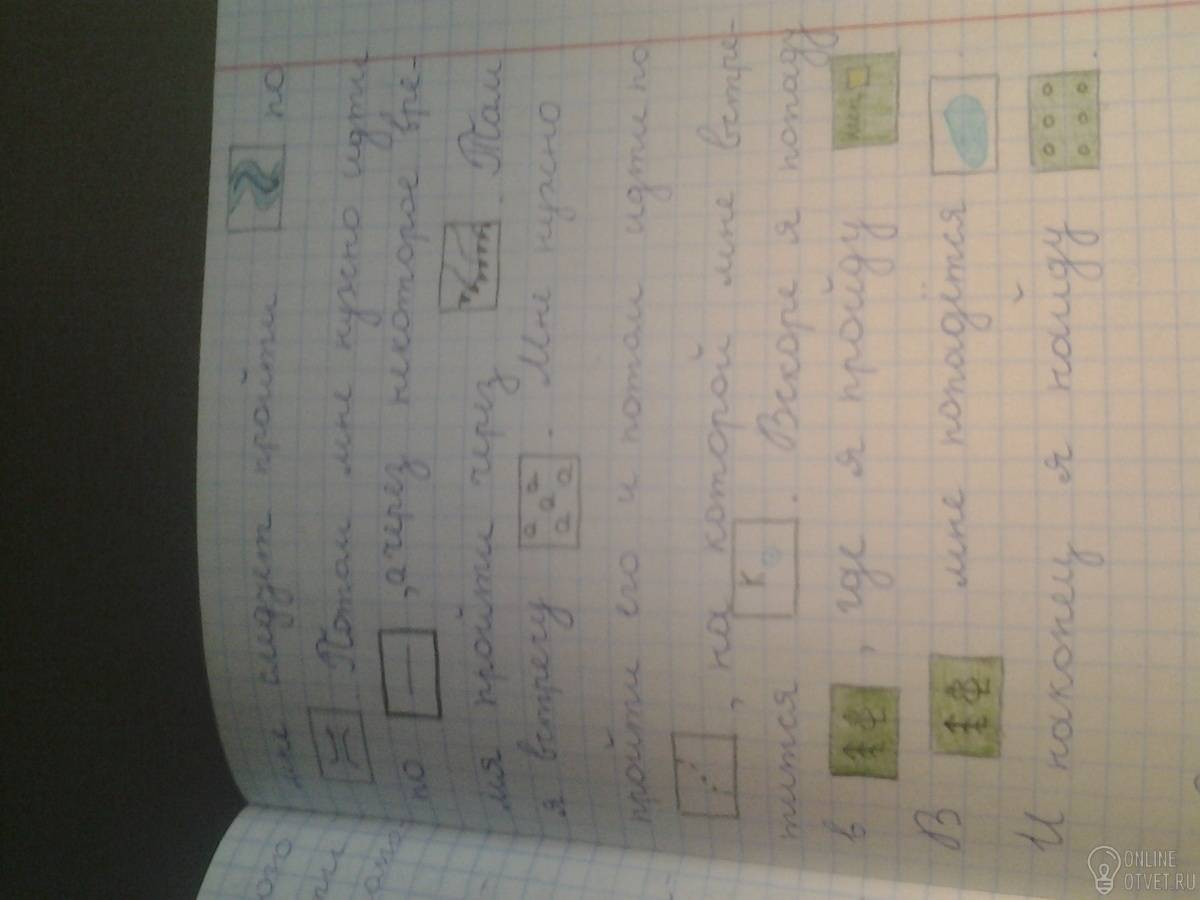 мне следует пройти по
. Потом мне нужно идти
по , а через некоторое вре-
мя пройти через . Там
я встречу . Мне нужно
пройти его и потом идти по
, на которой мне встре-
тится К . Вскоре я попаду
в , где я пройду
В мне попадётся .
И наконец я найду .
ONLINE
OTVET.RU